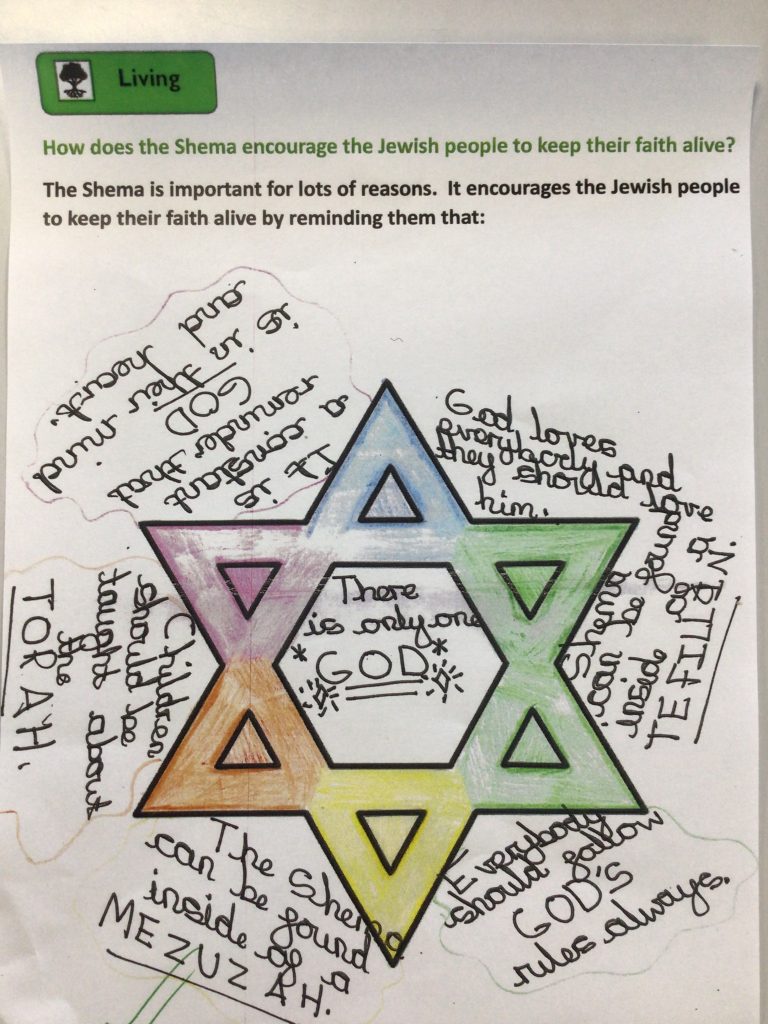 Living
How does the Shema encourage the Jewish people to keep their faith alive?
The Shema is important for lots of reasons. It encourages the Jewish people
to keep their faith alive by reminding them that:
It is
a constant
reminder that
GOD
is in their mind
and heart.
God loves
everybody and
they should love
him.
There
is only one
*GOD*
Shema
can be found
inside of a
Children
should be
taught about
the
TORAH.
The Shema
can be found
inside of a
MEZUZAH.
Everybody
should follow
GOD'S
rules always.